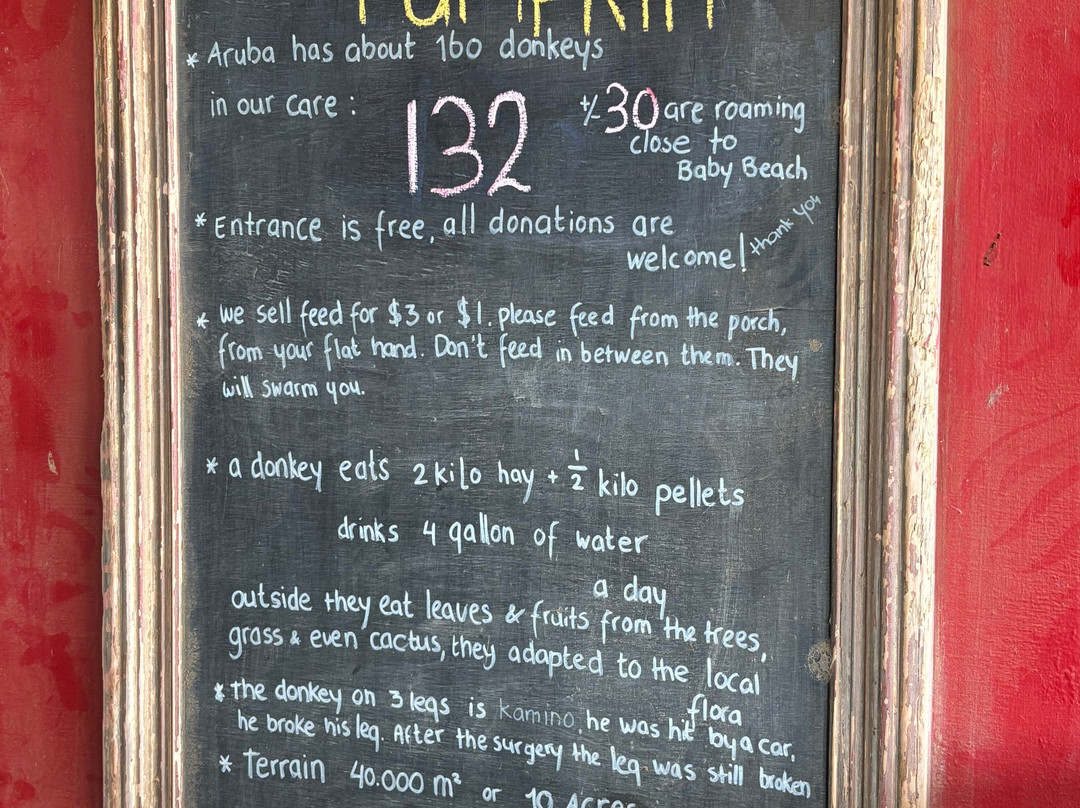 PUMPKIN
* Aruba has about 160 donkeys
in our care : 132 +/- 30 are roaming
close to
Baby Beach
* Entrance is free, all donations are
welcome! thank you
* we sell feed for $3 or $1. please feed from the porch,
from your flat hand. Don't feed in between them. They
will swarm you.
* a donkey eats 2 kilo hay + 1/2 kilo pellets
drinks 4 gallon of water
a day
outside they eat leaves & fruits from the trees,
grass & even cactus, they adapted to the local
flora
* the donkey on 3 legs is kamino, he was hit by a car,
he broke his leg. After the surgery the leg was still broken
* Terrain 40.000 m² or 10 Acres